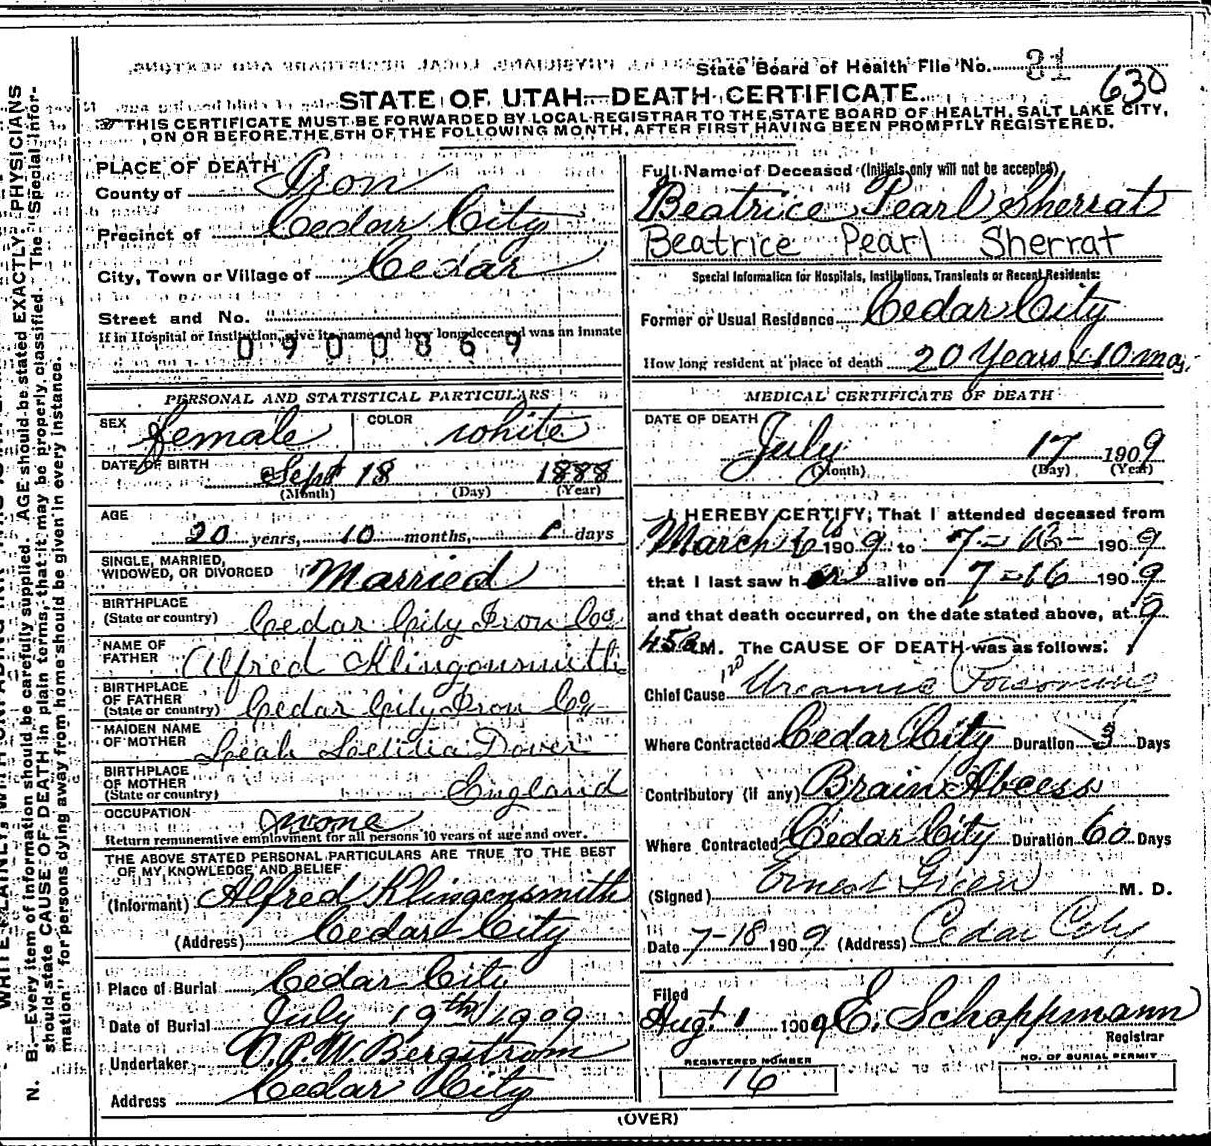 State Board of Health File No. 31
630
STATE OF UTAH—DEATH CERTIFICATE.
THIS CERTIFICATE MUST BE FORWARDED BY LOCAL REGISTRAR TO THE STATE BOARD OF HEALTH, SALT LAKE CITY,
ON OR BEFORE THE 5TH OF THE FOLLOWING MONTH, AFTER FIRST HAVING BEEN PROMPTLY REGISTERED.
PLACE OF DEATH
County of Iron
Precinct of Cedar City
City, Town or Village of Cedar
Street and No.
If in Hospital or Institution, give its name and how long deceased was an inmate
0900869
Full Name of Deceased (Initials only will not be accepted)
Beatrice Pearl Sherrat
Beatrice Pearl Sherrat
Special Information for Hospitals, Institutions, Transients or Recent Residents:
Former or Usual Residence Cedar City
How long resident at place of death 20 Years & 10 mos.
PERSONAL AND STATISTICAL PARTICULARS
SEX female COLOR white
DATE OF BIRTH Sept 18 1888
(Month) (Day) (Year)
AGE
20 years, 10 months, days
SINGLE, MARRIED,
WIDOWED, OR DIVORCED Married
BIRTHPLACE
(State or country) Cedar City Iron Co.
NAME OF
FATHER Alfred Klingonsmith
BIRTHPLACE
OF FATHER
(State or country) Cedar City Iron Co.
MAIDEN NAME
OF MOTHER Leah Laetitia Dover
BIRTHPLACE
OF MOTHER
(State or country) England
OCCUPATION none
Return remunerative employment for all persons 10 years of age and over.
THE ABOVE STATED PERSONAL PARTICULARS ARE TRUE TO THE BEST
OF MY KNOWLEDGE AND BELIEF
(Informant) Alfred Klingensmith
(Address) Cedar City
Place of Burial Cedar City
Date of Burial July 19th 1909
Undertaker O.P.W. Bergstrom
Address Cedar City
MEDICAL CERTIFICATE OF DEATH
DATE OF DEATH
July 17 1909
(Month) (Day) (Year)
I HEREBY CERTIFY, That I attended deceased from
March 6 1909 to 7- 1909
that I last saw her alive on 7-16 1909
and that death occurred, on the date stated above, at 9
45 a M. The CAUSE OF DEATH was as follows:
120
Chief Cause Uraemic Poisoning
Where Contracted Cedar City Duration 3 Days
Contributory (if any) Brain Abcess
Where Contracted Cedar City Duration 60 Days
(Signed) Ernest Green M. D.
Date 7-18 1909 (Address) Cedar City
Filed
Aug 1 1909 E. Schoppmann
Registrar
REGISTERED NUMBER
16
NO. OF BURIAL PERMIT
(OVER)
N. B.—Every item of information should be carefully supplied. AGE should be stated EXACTLY. PHYSICIANS
should state CAUSE OF DEATH in plain terms, that it may be properly classified. The "Special Infor-
mation" for persons dying away from home should be given in every instance.